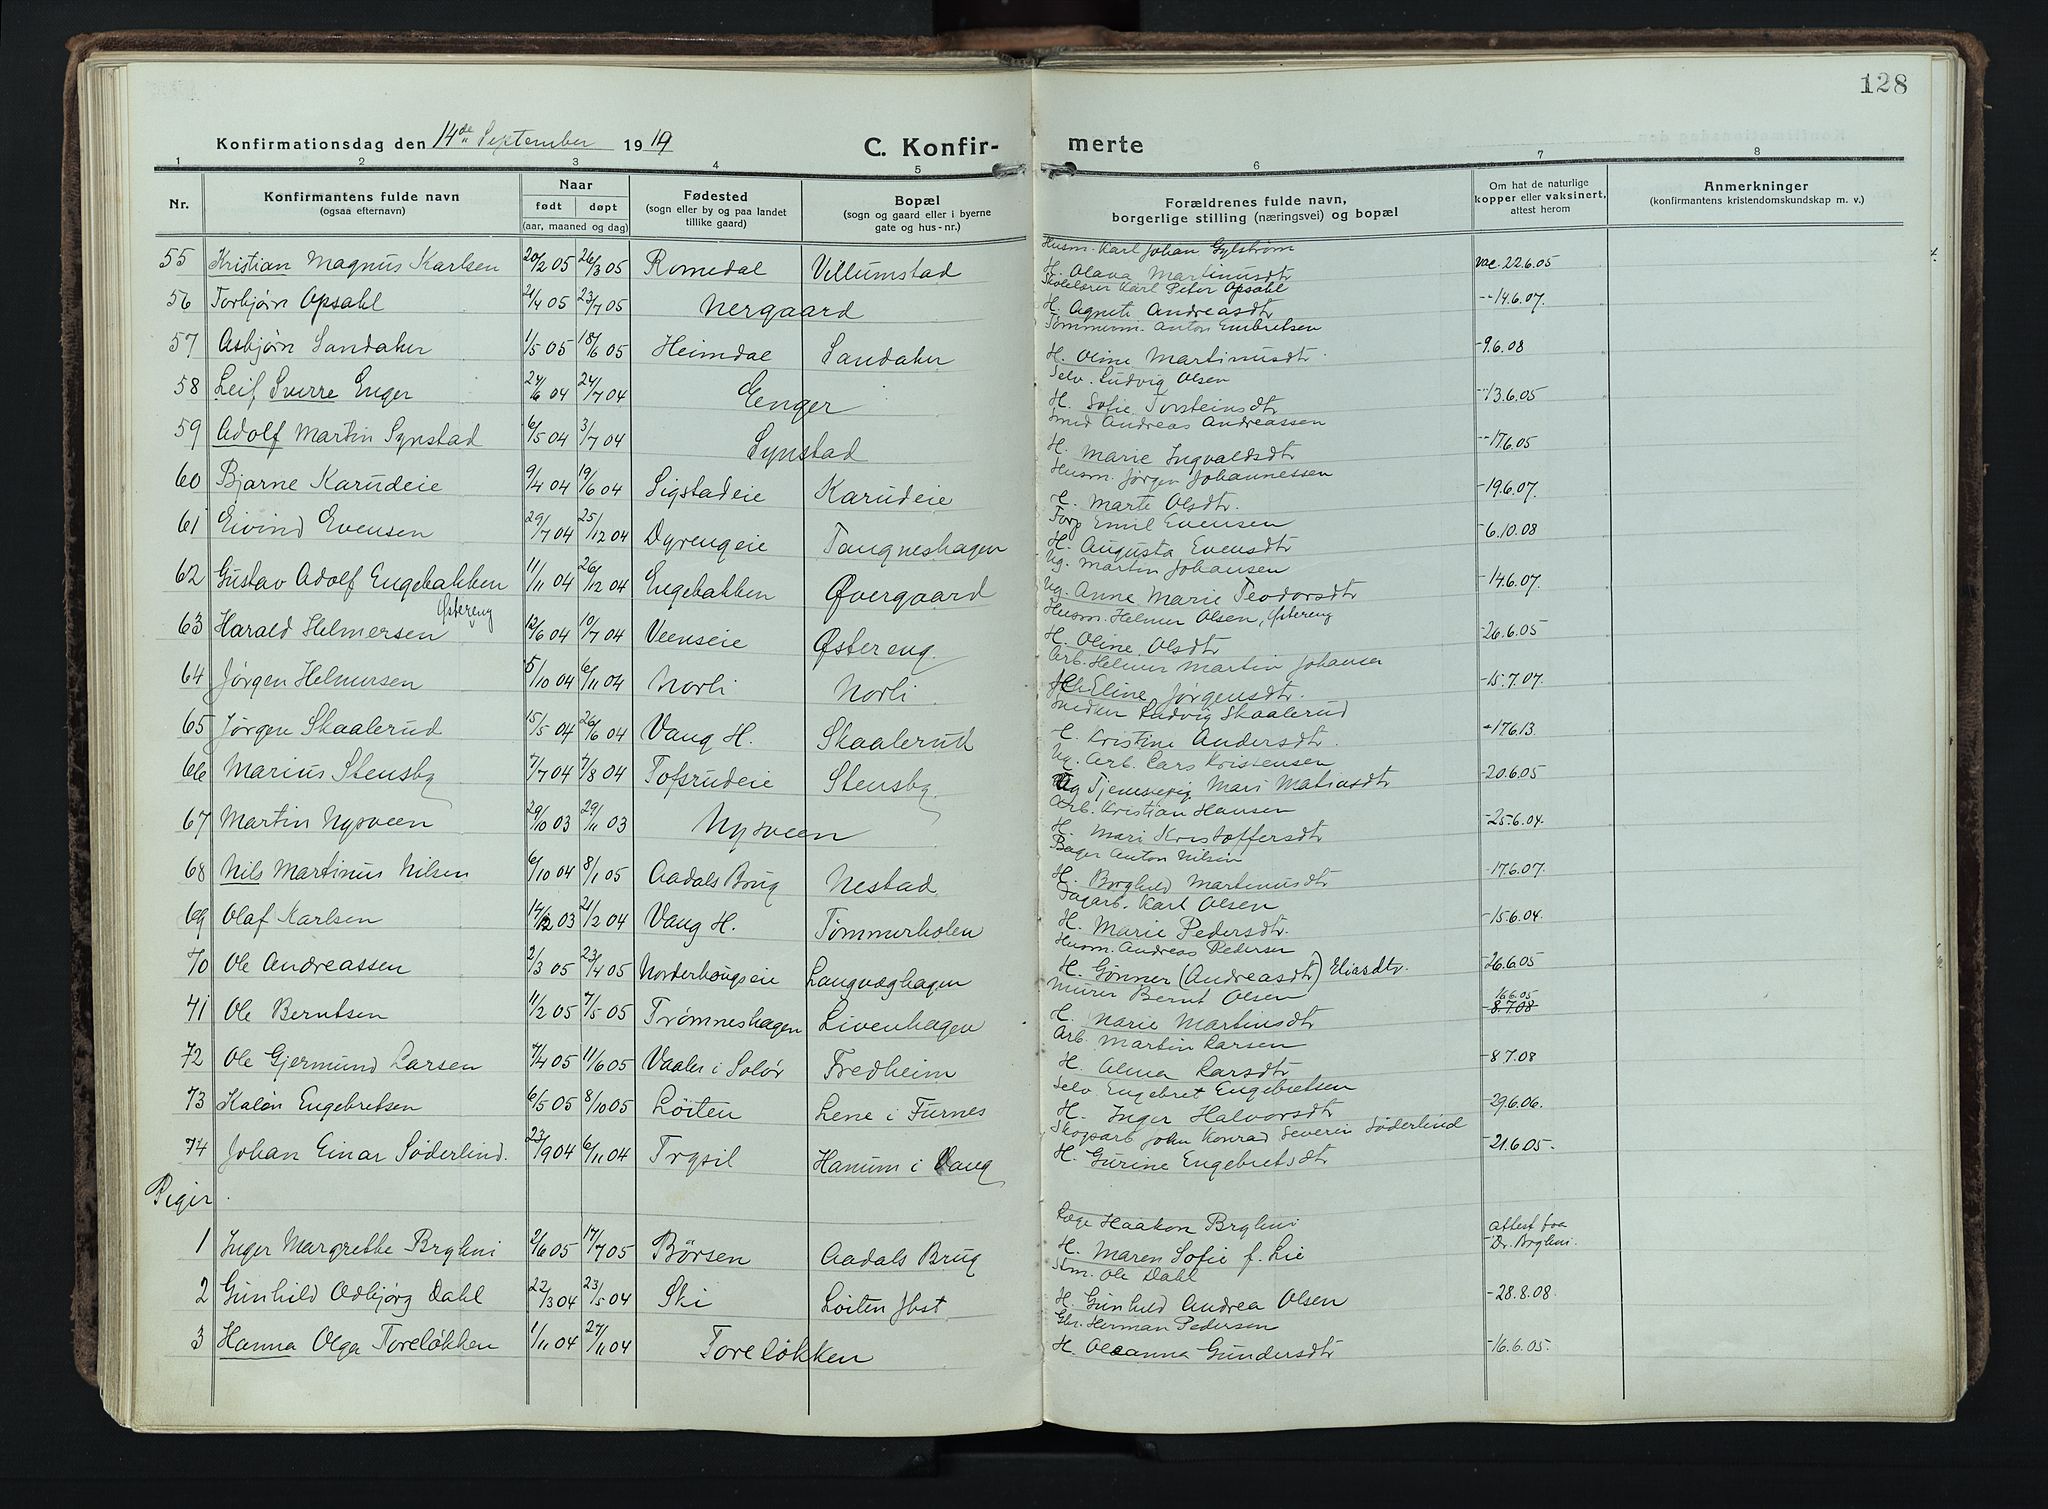 128
Konfirmationsdag den 14de September 1919
C. Konfir-merte
1 2 3 4 5 6 7 8
Nr.
Konfirmantens fulde navn (ogsaa efternavn)
Naar født døpt (aar, maaned og dag)
Fødested (sogn eller by og paa landet tillike gaard)
Bopæl (sogn og gaard eller i byerne gate og hus-nr.)
Forældrenes fulde navn, borgerlige stilling (næringsvei) og bopæl
Om hat de naturlige kopper eller vaksinert, attest herom
Anmerkninger (konfirmantens kristendomskundskap m. v.)
55 Kristian Magnus Karlsen 20/2 05 26/3 05 Romedal Villumstad Husm. Karl Johan Gylstrøm
H. Olava Martinusdtr vac. 22.6.05
56 Torbjørn Opsahl 21/4 05 23/7 05 Nergaard Skolelærer Karl Peter Opsahl
H. Agnete Andreasdtr -"-14.6.07.
57 Asbjørn Sandaker 1/5 05 18/6 05 Heimdal Sandaker Tømmerm. Anton Embretsen
H. Oline Martinusdtr. -9.6.08
58 Leif Sverre Enger 24/6 04 24/7 04 Enger Selv. Ludvig Olsen
H. Sofie Torsteinsdtr -"13.6.05
59 Adolf Martin Synstad 6/5 04 3/7 04 Synstad Smed Andreas Andreassen
H. Marie Ingvaldsdtr -"17.6.05
60 Bjarne Karudeie 9/4 04 19/6 04 Sigstadeie Karudeie Husm. Jørgen Johannessen
H. Marte Olsdtr. -19.6.07.
61 Eivind Evensen 29/7 04 25/12 04 Dyrengeie Tangneshagen Torp Emil Evensen
H. Augusta Evensdtr -6.10.08
62 Gustav Adolf Engebakken 11/11 04 26/12 04 Engebakken Øvergaard Ug. Martin Johansen
Ug. Anne Marie Teodorsdtr -14.6.07.
63 Harald Helmersen Østereng 12/6 04 10/7 04 Veenseie Østereng. Husm. Helmer Olsen, Østereng
H. Oline Olsdtr -26.6.05
64 Jørgen Helmersen 5/10 04 6/11 04 Norli Norli Arb. Helmer Martin Johansen
H. Eline Jørgensdtr. -15.7.07.
65 Jørgen Skaalerud 15/5 04 26/6 04 Vang H. Skaalerud Snedker Ludvig Skaalerud
H. Kristine Andersdtr. -17.6.13
66 Marius Stensby 7/7 04 7/8 04 Tofsrudeie Stensby. Ug. Arb. Lars Kristensen
Ug Tjenestepig Mari Matiasdtr -20.6.05
67 Martin Nysveen 20/10 03 29/11 03 Nysveen Arb. Kristian Hansen
H. Mari Kristoffersdtr -25.6.04.
68 Nils Martinus Nilsen 6/10 04 8/1 05 Aadals Brug Nestad Bager Anton Nilsen
H. Borghild Martinusdtr -17.6.07.
69 Olaf Karlsen 14/12 03 21/2 04 Vang H. Tømmerholen Dagarb. Karl Olsen
H. Marie Pedersdtr. -15.6.04.
70 Ole Andreassen 2/3 05 23/4 05 Norderhougseie Langvæghagen Husm. Andreas Pedersen
H. Gønner (Andreasdtr) Eliasdtr. -26.6.05
71 Ole Berntsen 11/2 05 7/5 05 Trømneshagen Livenhagen Murer Bernt Olsen
H. Marie Martinsdtr 16.6.05
-8.7.08
72 Ole Gjermund Larsen 7/4 05 11/6 05 Vaaler i Solør Fredheim Arb. Martin Larsen
H. Alma Larsdtr -8.7.08
73 Engebretsen 6/5 05 8/10 05 Løiten Lene i Furnes Selv. Engebret Engebretsen
H. Inger Halvorsdtr -29.6.06.
74 Johan Einar Söderlind. 23/9 04 6/11 04 Trysil Hanum i Vang Skogsarb John Konrad Severin Söderlind
H. Gurine Engebretsdtr -21.6.05-
Piger.
1 Inger Margrethe Bryhni 2/6 05 17/7 05 Børsen Aadals Brug Læge Haakon Bryhni
H. Maren Sofie f. Lie attest fra
Dr. Bryhni.
2 Gunhild Odbjørg Dahl 22/3 04 23/5 04 Ski Løiten Jbst Stm. Ole Dahl
H. Gunhild Andrea Olsen -28.8.08.
3 Hanna Olga Toreløkken 1/11 04 27/11 04 Toreløkken Gbr. Herman Pedersen
H. Oleanna Gundersdtr -16.6.05.